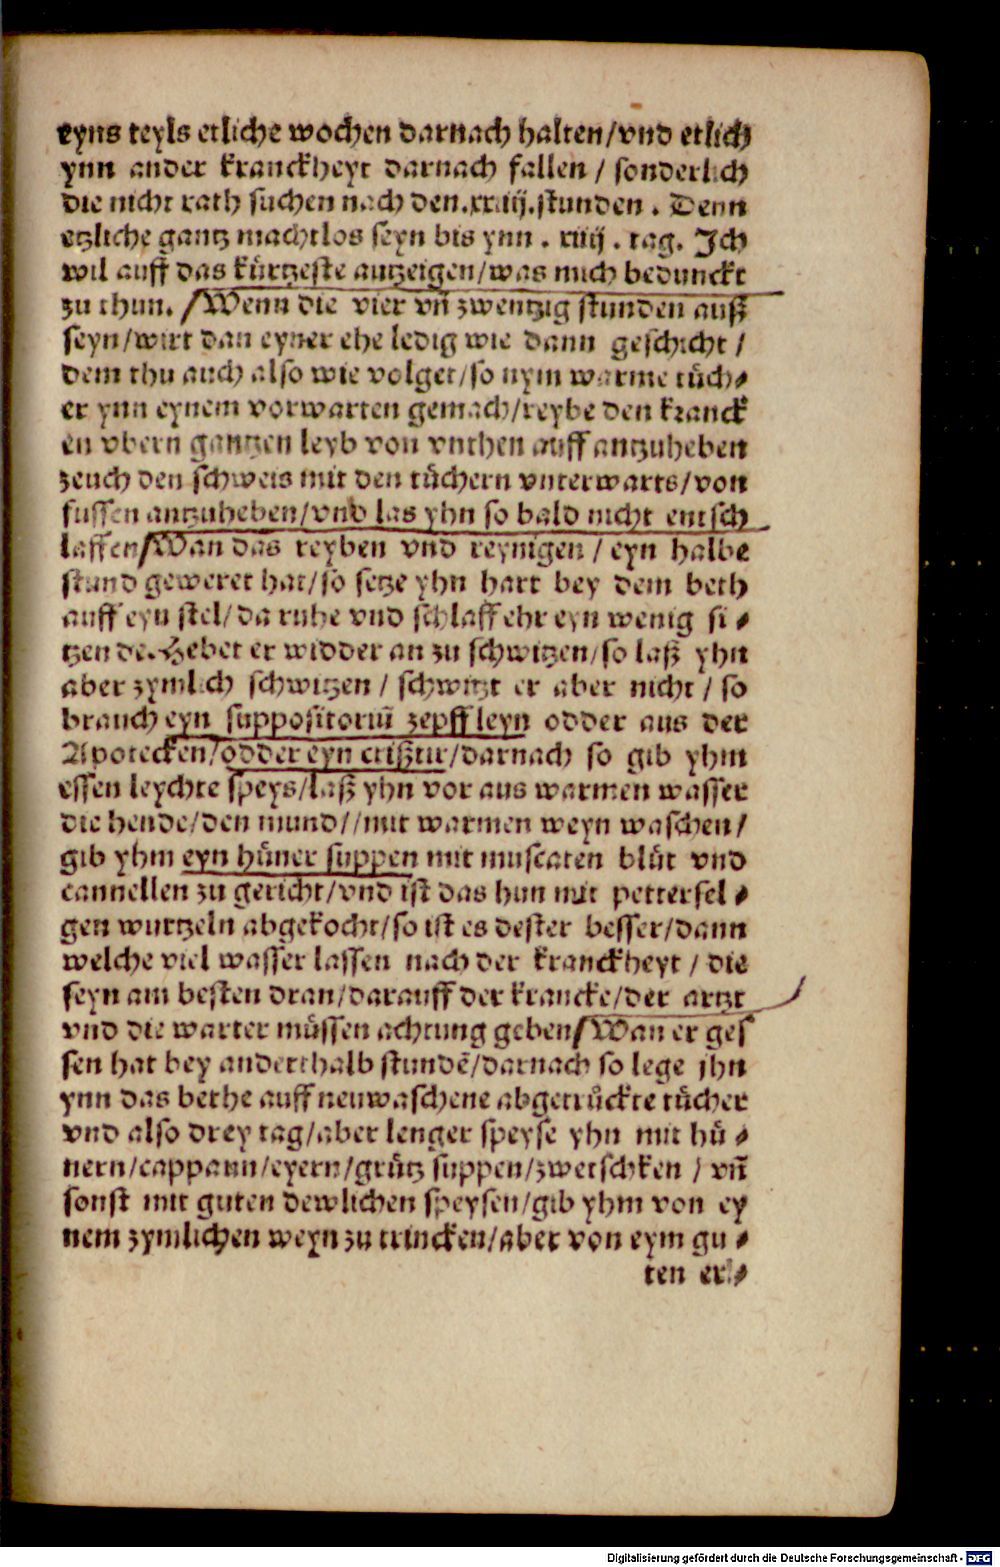 eyns teyls etliche wochen darnach halten/vnd etlich
ynn ander kranckheyt darnach fallen / sonderlich
die nicht rath suchen nach den.xxiiij.stunden . Denn
etzliche gantz machtlos seyn bis ynn . xiiij . tag. Ich
wil auff das kürtzeste antzeigen/was mich bedunckt
zu thun. /Wenn die vier vn̄ zwentzig stunden auß
seyn/wirt dan eyner ehe ledig wie dann geschicht /
dem thu auch also wie volget/so nym warme tůch⸗
er ynn eynem vorwarten gemach/reybe den kranck
en vbern gantzen leyb von vnthen auff antzuheben
zeuch den schweis mit den tůchern vnterwarts/von
fussen antzuheben/vnd las yhn so bald nicht entsch
laffen/Wan das reyben vnd reynigen / eyn halbe
stund geweret hat/so setze yhn hart bey dem beth
auff eyn stel/da ruhe vnd schlaff ehr eyn wenig si⸗
tzende.Hebet er widder an zu schwitzen/so laß yhn
aber zymlich schwitzen / schwitzt er aber nicht / so
brauch eyn suppositoriū zepffleyn odder aus der
Apotecken/odder eyn cristir/darnach so gib yhm
essen leychte speys/laß yhn vor aus warmen wasser
die hende/den mund//mit warmen weyn waschen/
gib yhm eyn hůner suppen mit muscaten blůt vnd
cannellen zu gericht/vnd ist das hun mit pettersel⸗
gen wurtzeln abgekocht/so ist es dester besser/dann
welche viel wasser lassen nach der kranckheyt / die
seyn am besten dran/darauff der krancke/der artzt
vnd die warter můssen achtung geben/Wan er ges
sen hat bey anderthalb stundē/darnach so lege jhn
ynn das bethe auff neuwaschene abgetrůckte tůcher
vnd also drey tag/aber lenger speyse yhn mit hů⸗
nern/cappann/eyern/grůtz suppen/zwetschken / vn̄
sonst mit guten dewlichen speysen/gib yhm von ey
nem zymlichen weyn zu trincken/aber von eym gu⸗
ten er⸗
Digitalisierung gefördert durch die Deutsche Forschungsgemeinschaft - DFG